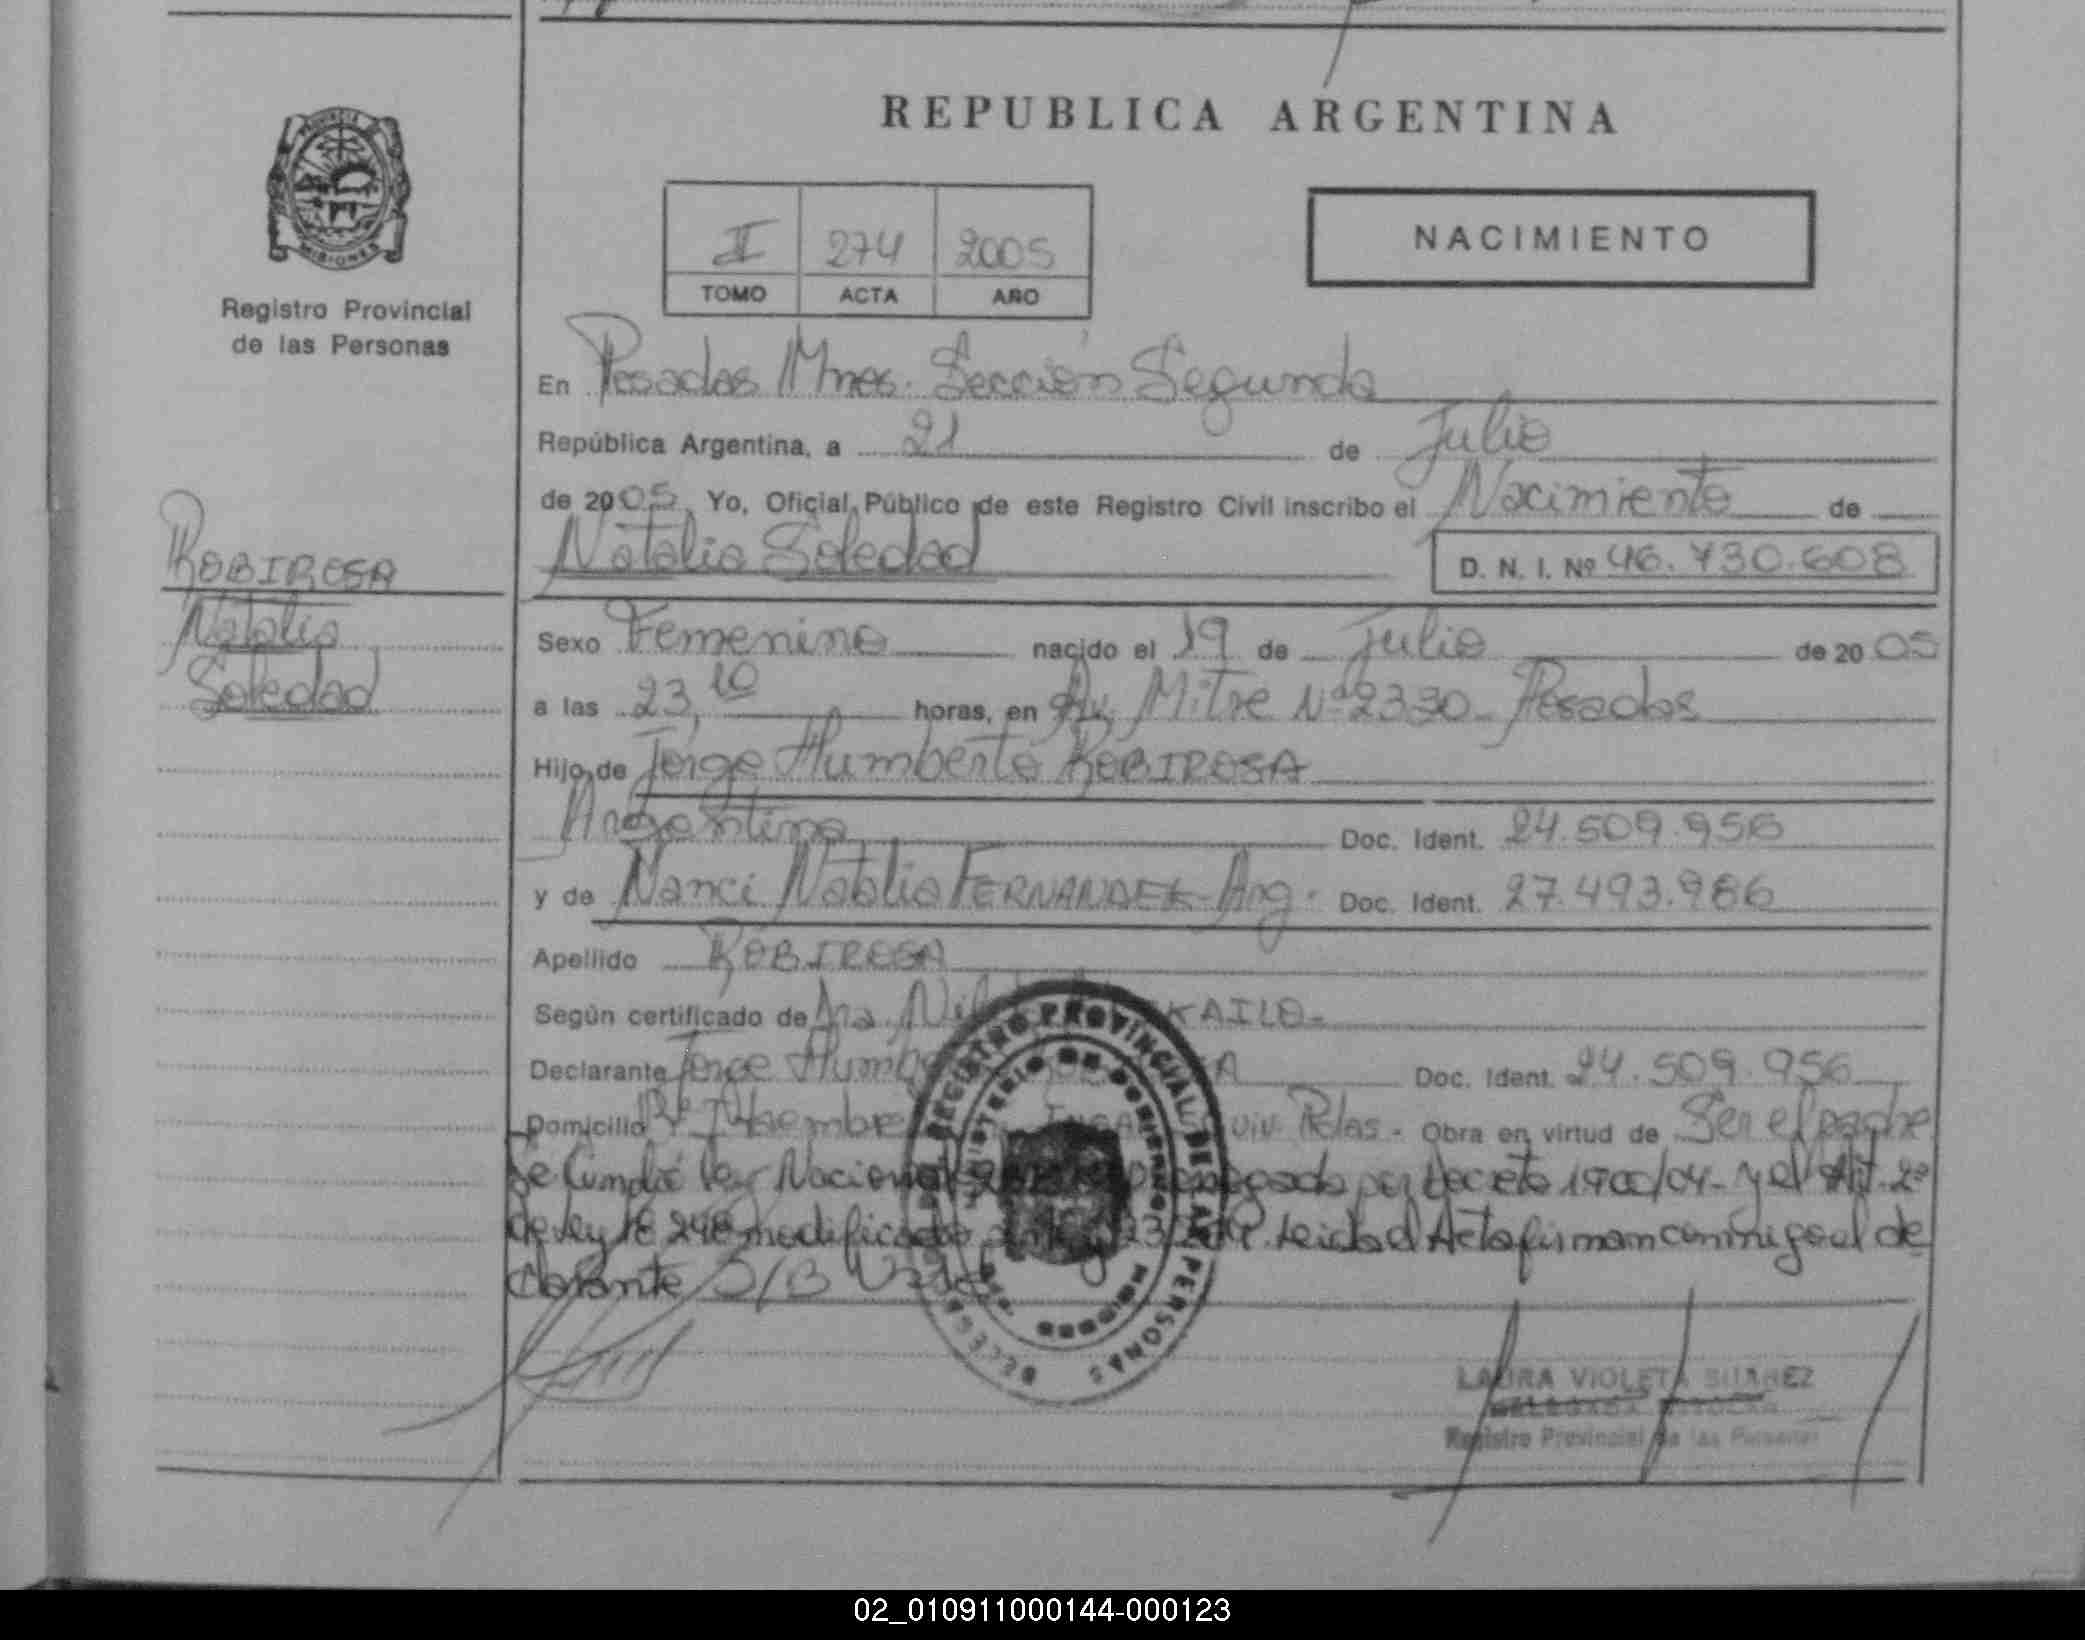 REPUBLICA ARGENTINA
PROVINCIA
MISIONES
Registro Provincial
de las Personas
II 274 2005
TOMO ACTA AÑO
NACIMIENTO
En Posadas Mnes. Sección Segunda
República Argentina, a 21 de Julio
de 2005 Yo, Oficial Público de este Registro Civil inscribo el Nacimiento de
Natalia Soledad
D. N. I. Nº 46.730.608
ROBIROSA
Natalia
Soledad
Sexo Femenino nacido el 19 de Julio de 2005
a las 23,10 horas, en Av. Mitre Nº 2330 - Posadas
Hijo de Jorge Humberto ROBIROSA
Argentina Doc. Ident. 24.509.956
y de Nanci Natalia FERNANDEZ - Arg. Doc. Ident. 27.493.986
Apellido ROBIROSA
Según certificado de KAILO-
Declarante Jorge Doc. Ident. 24.509.956
Domicilio viv. Pdas - Obra en virtud de Ser el padre
Se Cumple ley Nacional por decreto 1900/04 - y el Art. 2º
de ley 18248 modificado Leida el Acta firman conmigo el de
clarante S/B Vale
REGISTRO PROVINCIAL DE LAS PERSONAS
MINISTERIO DE GOBIERNO
LAURA VIOLETA SUAREZ
DELEGADA TITULAR
Registro Provincial de las Personas
02_010911000144-000123